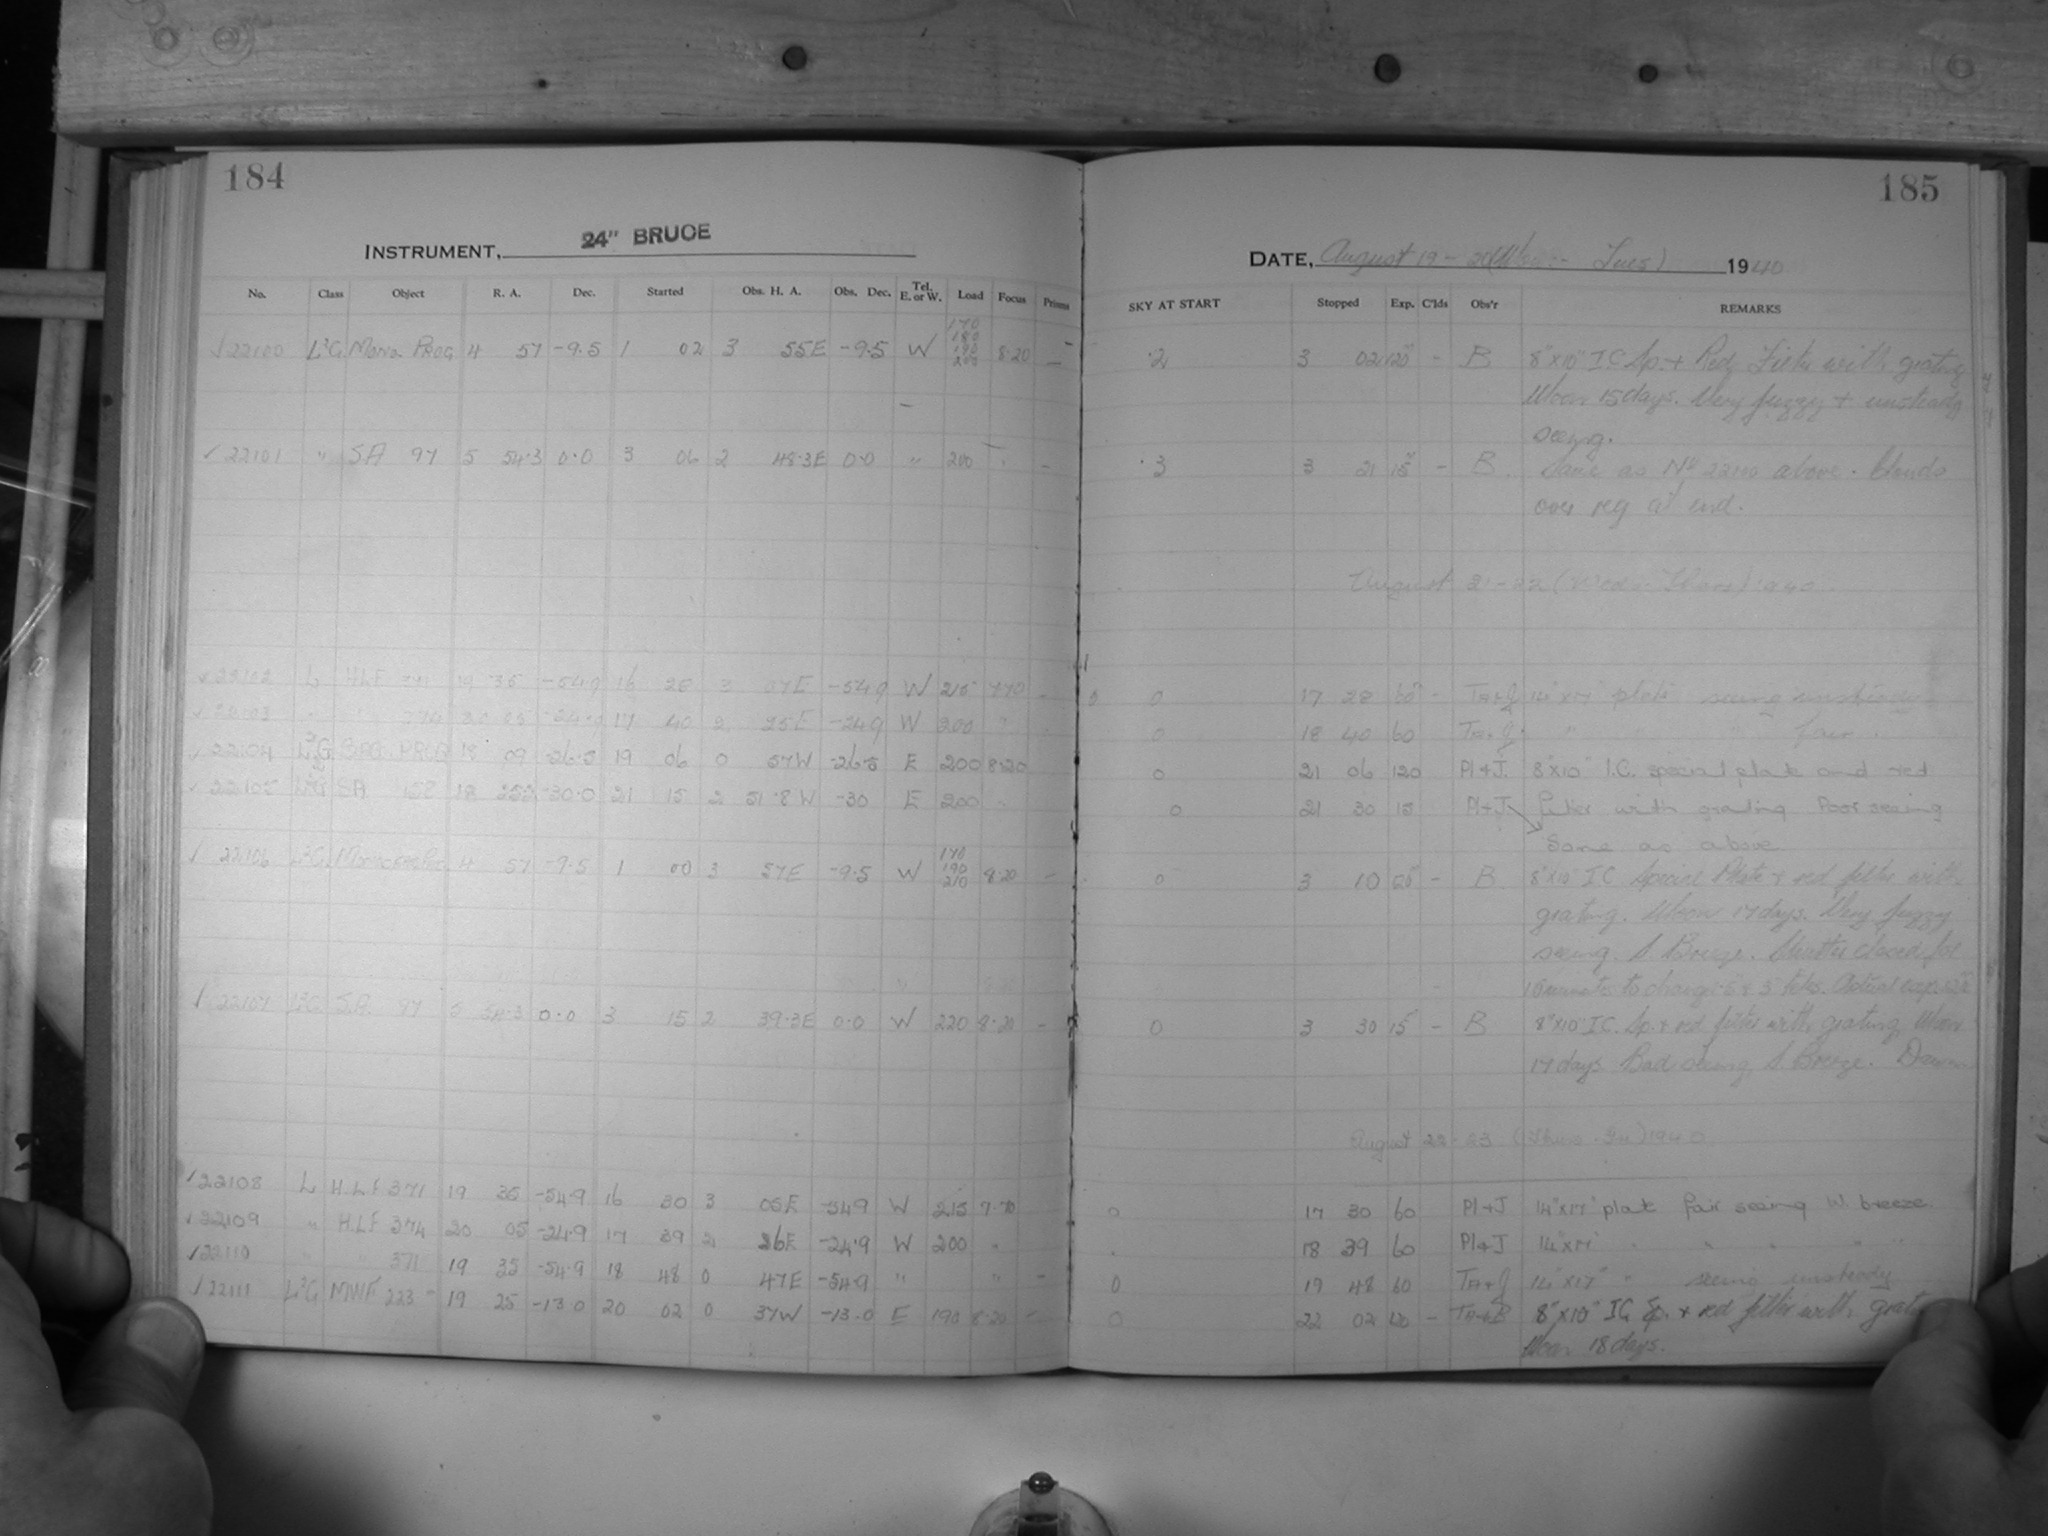 184
185
INSTRUMENT, 24" BRUCE
DATE, August 19 - 20 (Mon. - Tues) 1940
No. Class Object R. A. Dec. Started Obs. H. A. Obs. Dec. Tel. E. or W. Load Focus Prisms SKY AT START Stopped Exp. C'lds Obs'r REMARKS
22100 L²G Mono. PROG 4 57 -9.5 1 02 3 55E -9.5 W 170 180 190 200 8.20 - 2 3 02 120 - B 8"x10" I C Sp. + Red Filter with grating
Moon 15 days. Very fuzzy + unsteady
seeing.
22101 " SA 97 5 54.3 0.0 3 06 2 48.3E 0.0 " 200 - 3 3 21 15 - B Same as No 22100 above. Clouds
over reg at end.
August 21-22 (Wed - Thurs) 1940
22102 L HLF 371 19 35 -54.9 16 28 3 07E -54.9 W 215 7.70 - 0 17 28 60 - TA+J 14"x17" plate seeing unsteady
22103 " 374 20 05 -24.9 17 40 2 25E -24.9 W 200 " 0 18 40 60 TA+J " " " fair
22104 L²G 18 09 -26.5 19 06 0 57W -26.5 E 200 8.20 0 21 06 120 Pl+J. 8"x10" I.C. special plate and red
filter with grating Poor seeing
22105 L²G SA 158 18 -30.0 21 15 2 51.8W -30 E 200 " 0 21 30 15 Pl+J Same as above
22106 L²G 4 57 -9.5 1 00 3 57E -9.5 W 170 190 210 8.20 - 0 3 10 - B 8"x10" I C Special Plate + red filter with
grating. Moon 17 days. Very fuzzy
seeing. S. Breeze. Shutter closed for
10 minutes to change
22107 L²G SA 97 5 54.3 0.0 3 15 2 39.3E 0.0 W 220 8.20 - 0 3 30 15 - B 8"x10" I.C. Sp. + red filter with grating Moon
17 days. Bad seeing, S. Breeze. Dawn
August 22-23 (Thurs - Fri) 1940
22108 L H.L.F 371 19 35 -54.9 16 30 3 05E -54.9 W 215 7.70 0 17 30 60 Pl+J 14"x17" plate fair seeing W. breeze.
22109 " H.L.F 374 20 05 -24.9 17 39 2 26E -24.9 W 200 " 18 39 60 Pl+J 14"x17" " " " " "
22110 " " 371 19 35 -54.9 18 48 0 47E -54.9 " " - 0 19 48 60 TA+J 14"x17" " seeing unsteady
22111 L²G MWF 223 19 25 -13.0 20 02 0 37W -13.0 E 190 8.20 - 0 22 02 120 - TA+B 8"x10" IC Sp. + red filter with
Moon 18 days.